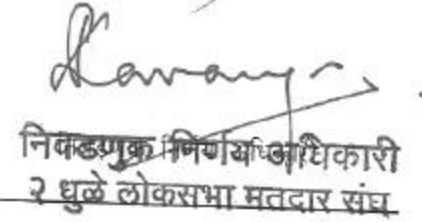 निवडणूक निर्णय अधिकारी
२ धुळे लोकसभा मतदार संघ